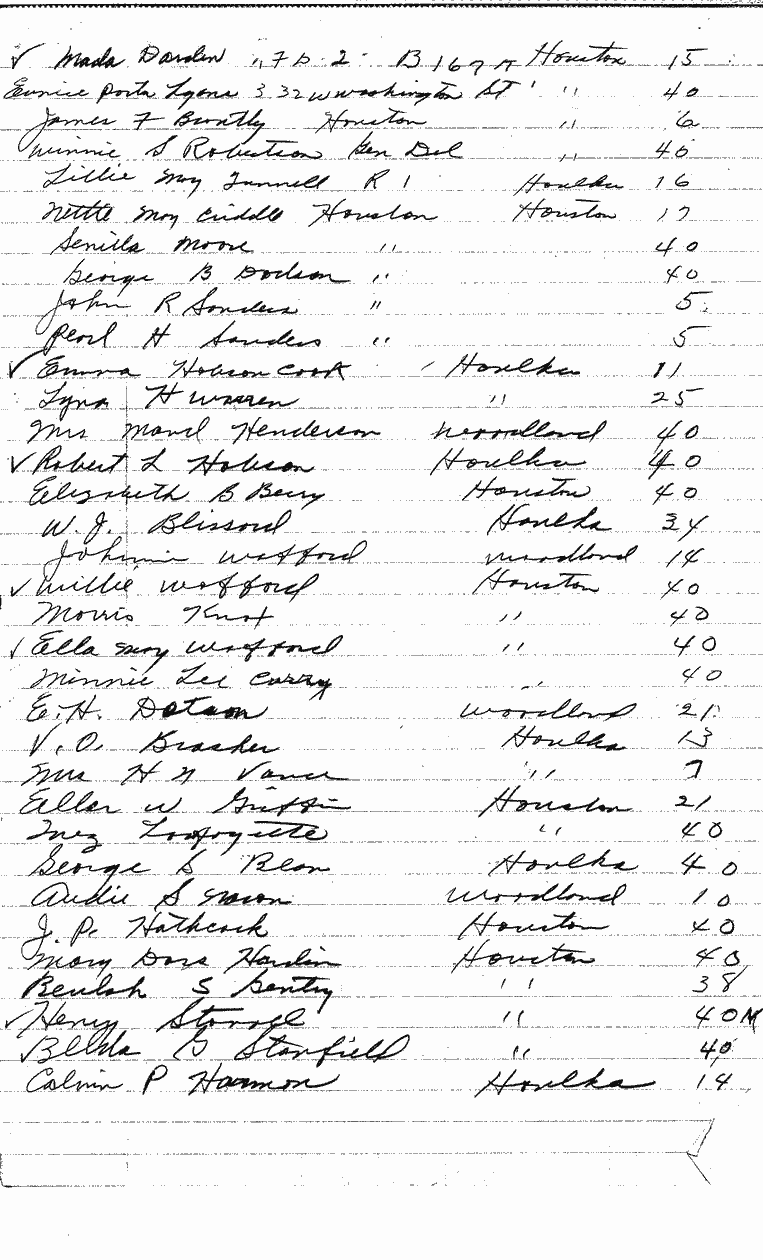 ✓ Mada Darden " 7 D - 2 - B 167 A Houston 15
Eunice Porta Lyons 332 W Washington St " 40
James F Brantly Houston " 6
Minnie S Robertson Gen Del " 40
Lillie May Tunnell R 1 Houlka 16
Nettie May Criddle Houston Houston 17
Senilla Moore " 40
George B Dodson " 40
John R Sanders " 5
Pearl H Sanders " 5
✓ Emma Hobson Cook Houlka 11
Lyna H Warren " 25
Mrs Maud Henderson Woodland 40
✓ Robert L Hobson Houlka 40
Elizabeth B Berry Houston 40
W. J. Blissard Houlka 34
Johnnie Wofford Woodland 14
✓ Willie Wofford Houston 40
Morris Knox " 40
✓ Ella May Wofford " 40
Minnie Lee Curry " 40
E. H. Dotson Woodland 21
V. O. Brasher Houlka 13
Mrs H N Vance " 7
Ellar W Griffin Houston 21
Inez Lafayette " 40
George L Bean Houlka 40
Audie S Mason Woodland 10
J. P. Hathcock Houston 40
Mary Dora Hardin Houston 40
Beulah S Gentry " 38
✓ Henry " 40 M
✓ G Stanfield " 40
Calvin P Harmon Houlka 14